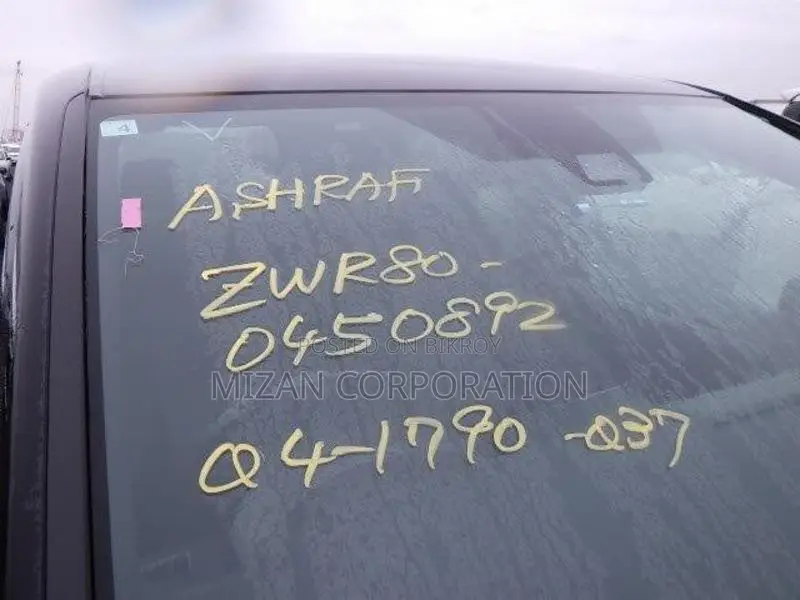 4
ASHRAF
ZWR80-
0450892
POSTED ON BIKROY
MIZAN CORPORATION
Q4-1790-Q37